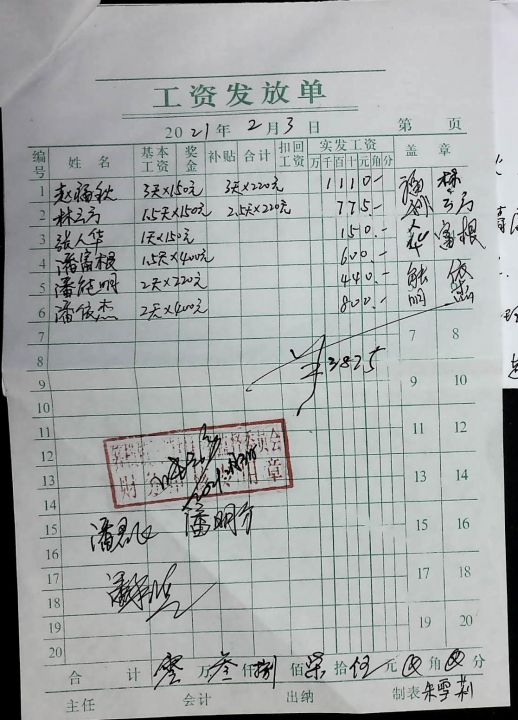 工资发放单
2021年2月3日 第 页
编号 姓名 基本工资 奖金 补贴 合计 扣回工资 实发工资 万千百十元角分 盖章
1 赵福钦 3天×150元 3天×220元 1110.-
2 林云方 1.5天×150元 2.5天×220元 775.-
3 张人华 1天×150元 150.-
4 潘富根 1.5天×400元 600.-
5 潘能明 2天×220元 440.-
6 潘依杰 2天×400元 800.-
7 7 8
8 ¥3825
9 9 10
10
11 11 12
12
13 13 14
14
15 15 16
16 潘明方
17 17 18
18
19 19 20
20
合计 零万叁仟捌佰柒拾伍元⊗角⊗分
主任 会计 出纳 制表 朱雪莉